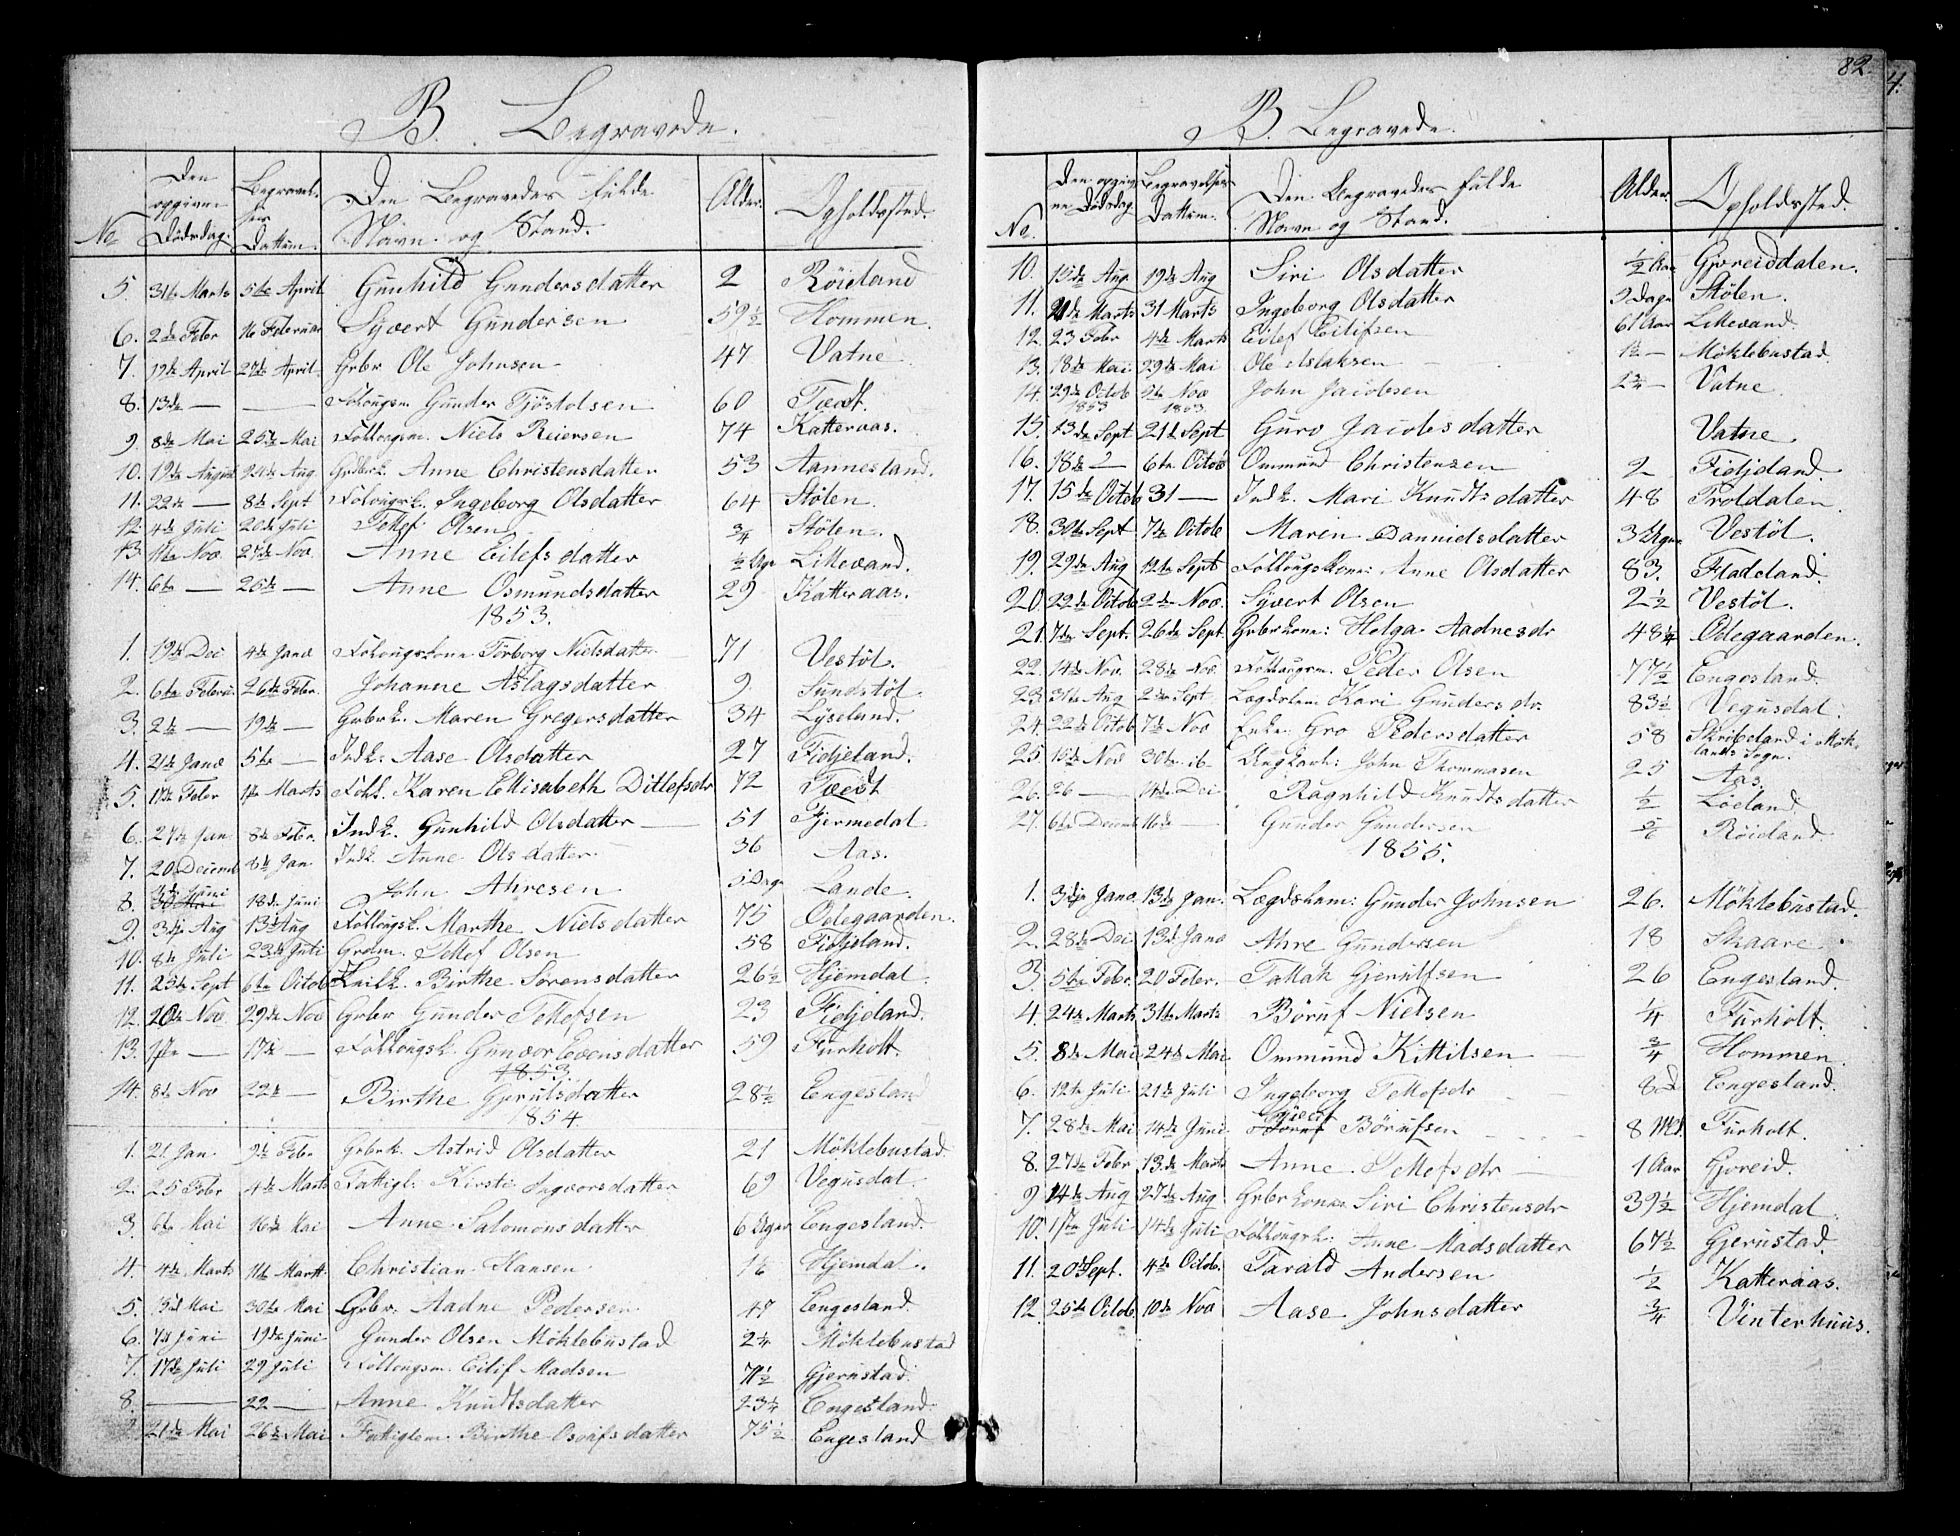 82
4.
B. Begravede.
No
Den opgivne Dödsdag.
Begravelsens Dattum.
Den Begravedes fulde Navn og Stand.
Alder.
Opholdssted.
5. 31te Marts 5te April Gunhild Gundersdatter 2 Röieland
6. 2de Febr 16 Februar Syvert Gundersen 59 1/2 Hommen.
7. 19de April 27de April. Grbr Ole Johnsen 47 Vatne
8. 13de — — Föderaadsm Gunder Tjöstolsen 60 Tvedt.
9. 8de Mai 25de Mai Niels Reiersen 74 Katteraas.
10. 19de August 24de Aug Anne Christensdatter 53 Aannesland.
11. 22de — 8de Sept Ingeborg Olsdatter 64 Stölen.
12. 4de Juli 20de Juli Tellef Olsen 3/4 Stölen.
13. 11te Nov 27de Nov. Anne Eilefsdatter 1/2 Uge Lillevand.
14. 6te — 25de — Anne Osmundsdatter 29 Katteraas.
1853.
1. 19de Dec 4de Janv Torborg Nielsdatter 71 Vestöl.
2. 6te Februar 26de Febr. Johanne Aslagsdatter 9 Sundstöl
3. 2de — 19de — Grbrk. Maren Gregersdatter 34 Lyseland.
4. 21de Janv 5te — Indk. Aase Olsdatter 27 Fidjeland.
5. 17de Febr 1ste Marts Karen Ellisabeth Ditlefsdr 72 Tvedt
6. 27de Jan 8de Febr. Indk. Gunhild Olsdatter — 51 Fjermedal
7. 20 Decemb 8de Jan Indk. Anne Olsdatter 36 Aas.
8. 3de Juni 18de Juni John Ahresen 5 Dage Lande
9. 3die Aug 13de Aug Marthe Nielsdatter 75 Ödegaarden.
10. 8de Juli 23de Juli Tellef Olsen 58 Fidjeland.
11. 23de Sept 6te Octob Birthe Sörensdatter 26 1/2 Hjemdal.
12. 20de Nov 29de Nov Grbr Gunder Tellefsen 23 Fidjeland.
13. 1ste — 17de — Gunvor Evensdatter 59 Furholt.
1853.
14. 8de Nov 22de — Birthe Gjerulsdatter 28 1/2 Engesland
1854
1. 21 Jan 9de Febr Grbrk. Astrid Olsdatter 21 Möklebustad
2. 25 Febr 4de Marts Fattigl. Kirsti Ingvorsdatter 69 Vegusdal.
3. 6te Mai 16de Mai Anne Salomonsdatter 6 Uger Engesland.
4. 4de Marts 11te Martt. Christian Hansen 16 Hjemdal.
5. 13de Mai 30te Mai Grbr. Aadne Pedersen 47 Engesland.
6. 7de Juni 19de Juni Gunder Olsen Möklebustad 2 1/4 Möklebustad
7. 17de Juli 29 Juli Eilif Madsen 71 1/2 Gjerustad.
8. — 22 — Anne Knudtsdatter 23 1/4 Engesland.
9. 21de Mai 26de Mai Fattiglem. Birthe Osulfsdatter 75 1/2 Engesland
B. Begravede.
No.
Den opgivne Dödsdag
Begravelsens Dattum.
Den Begravedes fulde Navn og Stand.
Alder.
Opholdssted.
10. 15de Aug. 19de Aug Siri Olsdatter 1/2 Aar Gjoreiddalen.
11. 21de Marts 31 Marts Ingeborg Olsdatter 9 Dage Stölen.
12. 23 Febr 4de Marts Eilef Eilifsen 61 Aar Lillevand.
13. 18de Mai 29de Mai Ole Aslaksen 1 1/2 — Möklebustad
14. 29de Octob 1853 9de Nov 1853. John Jacobsen 2 3/4 — Vatne
15. 13de Sept 21de Sept Guro Jacobsdatter Vatne.
16. 18de — 6te Octob Ommund Christensen 2 Fidjeland.
17. 15de Octob 31 — Indk. Mari Knudtsdatter 48 Troldalen.
18. 30te Sept 7de Octob Maren Dannielsdatter 3 Uger Vestöl.
19. 29de Aug 12te Sept Anne Olsdatter 83. Fladeland.
20. 22de Octob 2den Nov. Syvert Olsen 2 1/2 Vestöl.
21. 7de Sept. 26de Sept. Grbrkone: Helga Aadnesdr 48 1/4 Ödegaarden.
22. 14de Nov. 28de Nov Peder Olsen 77 1/2 Engesland.
23. 31te Aug 2den Sept Lægdslem Kari Gundersdr. 83 1/2 Vegusdal.
24. 22de Octob 7de Nov Enke Gro Pedersdatter 58 Skribeland i Möklands Sogn.
25. 15de Nov 30te ib Ungkarl: John Thommasen 25 Aas.
26. 26 — 14de Dec Ragnhild Knudtsdatter 1/2 Löeland
27. 6te Decemb 16de — Gunder Gundersen 5/6 Röieland
1855.
1. 3die Janv. 13de Jan. Lægdslem: Gunder Johnsen 26. Möklebustad.
2. 28de Dec 13de Janv Ahre Gundersen 18 Skaare.
3. 5te Febr. 20 Febr. Tallak Gjerulfsen 26 Engesland.
4. 24de Marts 31te Marts Börulf Nielsen 1/4 Furholt.
5. 8de Mai 24de Mai Ommund Kittilsen 3/4 Hommen.
6. 12te Juli 21de Juli Ingeborg Tellefsdr 8 d Engesland.
7. 28de Mai 14de Juni Syvert Börulfsen 8 Md. Furholt.
8. 27de Febr 13de Marts Anne Tellefsdr 1 Aar Gjoreid.
9. 14de Aug 27de Aug Grbrkone Siri Christensdr 39 1/2 Hjemdal.
10. 1ste Juli 14de Juli Anne Madsdatter 67 1/2 Gjerustad.
11. 20de Sept. 4de Octob. Tarald Andersen 1/2 Katteraas.
12. 26de Octob 10de Nov Aase Johnsdatter 3/4 Vinterhuus.